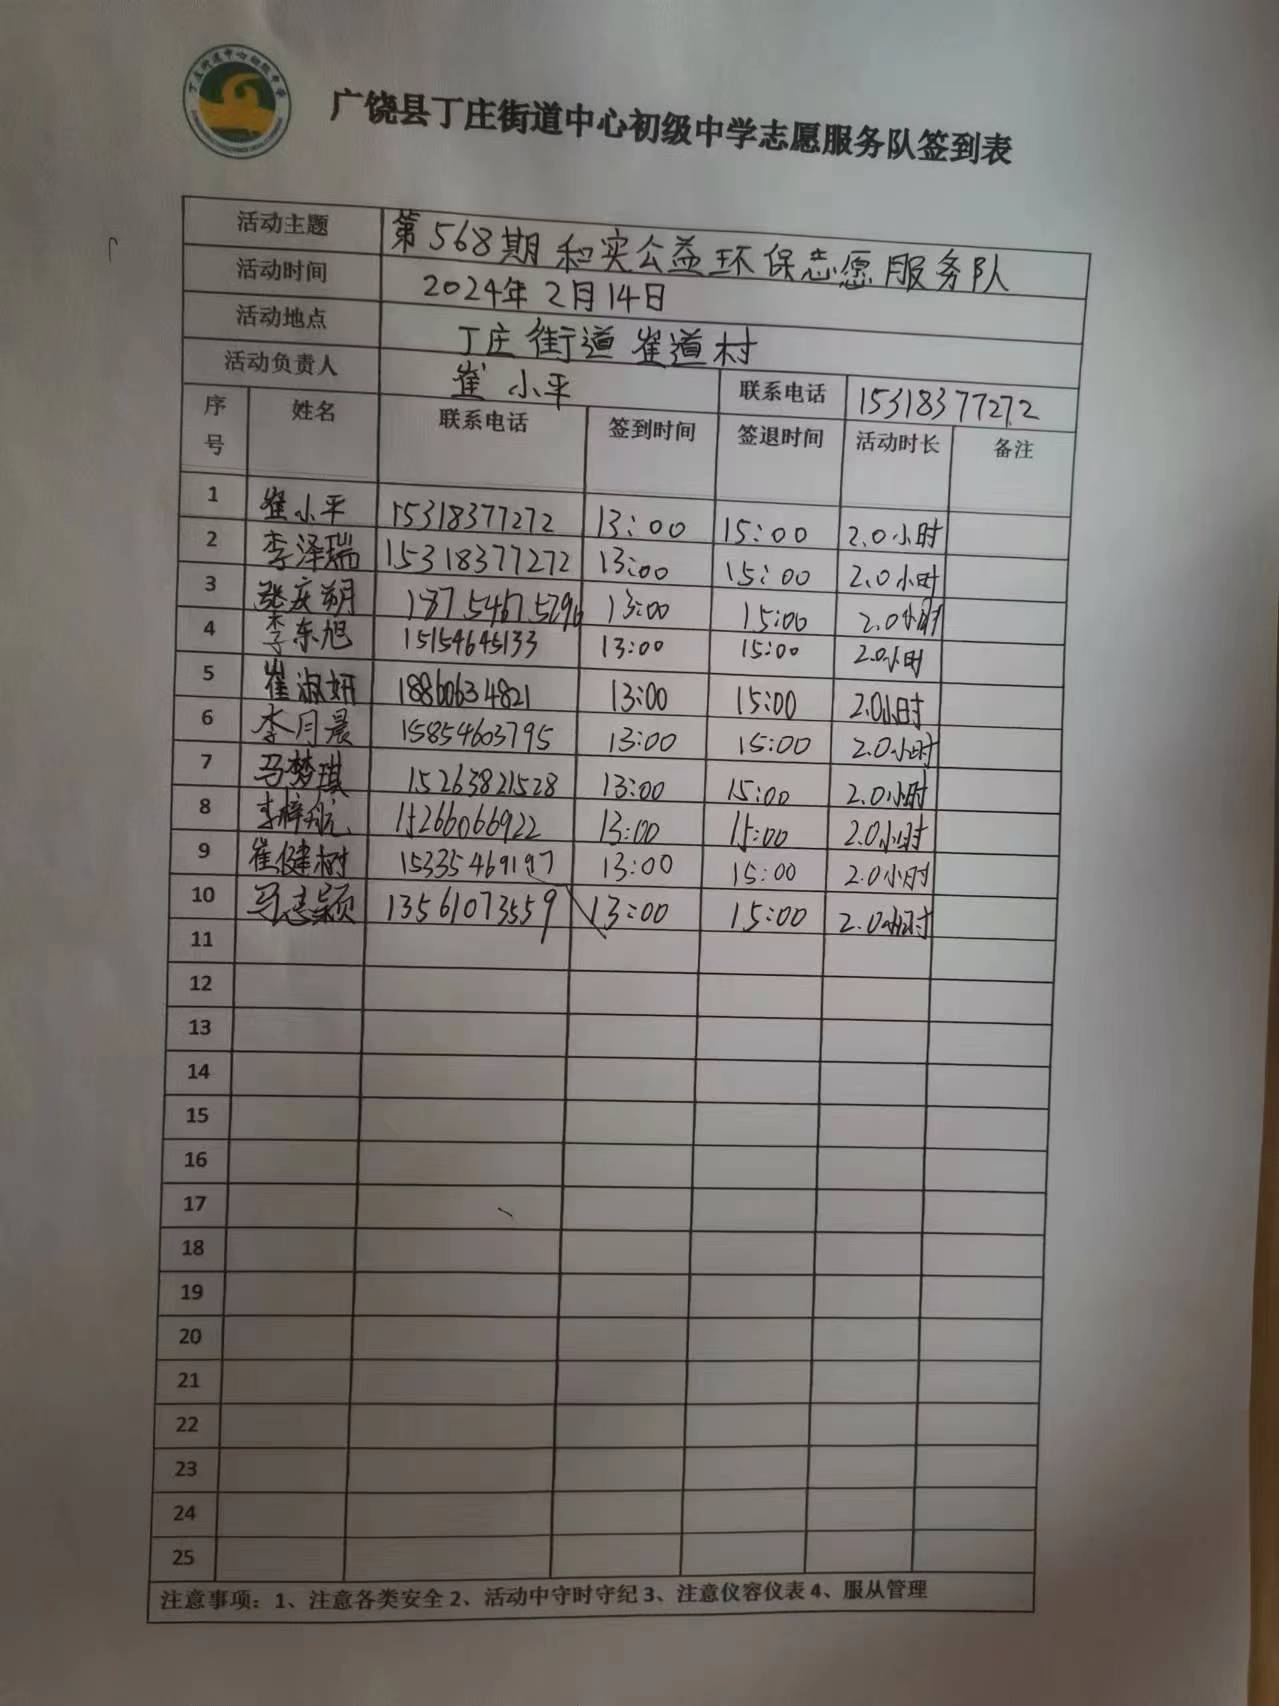 丁庄街道中心初级中学
广饶县丁庄街道中心初级中学志愿服务队签到表
活动主题 第568期和实公益环保志愿服务队
活动时间 2024年2月14日
活动地点 丁庄街道崔道村
活动负责人 崔小平 联系电话 15318377272
序号 姓名 联系电话 签到时间 签退时间 活动时长 备注
1 崔小平 15318377272 13:00 15:00 2.0小时
2 李泽瑞 15318377272 13:00 15:00 2.0小时
3 张庆朔 18754675296 13:00 15:00 2.0小时
4 李东旭 15154645133 13:00 15:00 2.0小时
5 崔淑妍 18860634821 13:00 15:00 2.0小时
6 李月晨 15854603795 13:00 15:00 2.0小时
7 马梦琪 15263821528 13:00 15:00 2.0小时
8 李梓航 15266066922 13:00 15:00 2.0小时
9 崔健树 15335469197 13:00 15:00 2.0小时
10 马志颖 13561073559 13:00 15:00 2.0小时
11
12
13
14
15
16
17
18
19
20
21
22
23
24
25
注意事项：1、注意各类安全 2、活动中守时守纪 3、注意仪容仪表 4、服从管理